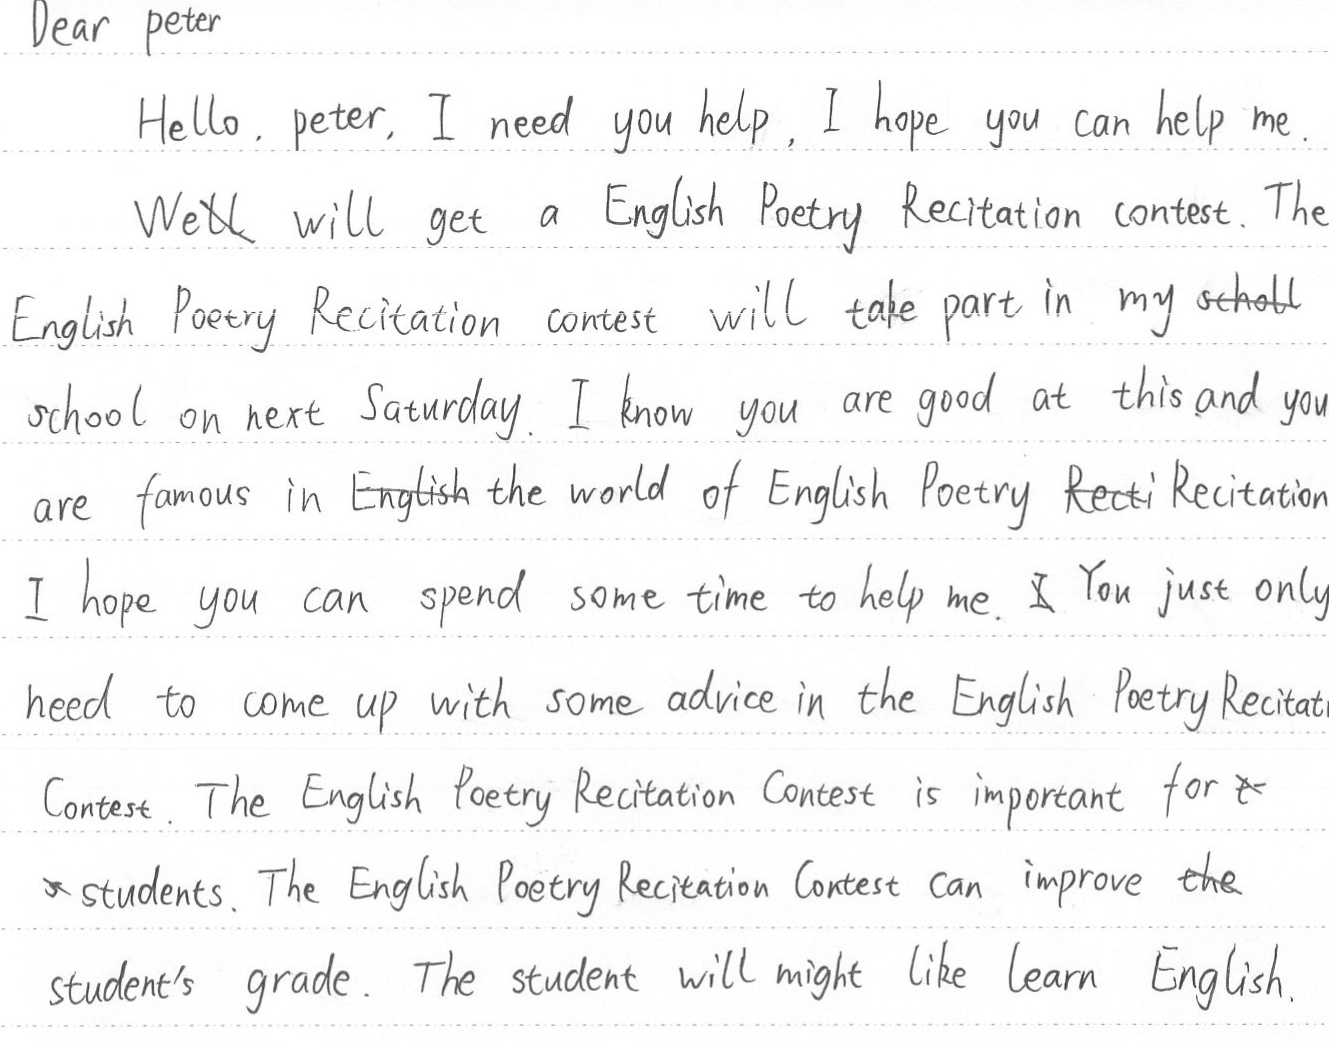 Dear peter
Hello, peter, I need you help, I hope you can help me.
We will get a English Poetry Recitation contest. The
English Poetry Recitation contest will take part in my scholl
school on next Saturday. I know you are good at this and you
are famous in English the world of English Poetry Recti Recitation
I hope you can spend some time to help me. I You just only
need to come up with some advice in the English Poetry Recitati
Contest. The English Poetry Recitation Contest is important for
students. The English Poetry Recitation Contest can improve the
student's grade. The student will might like learn English.